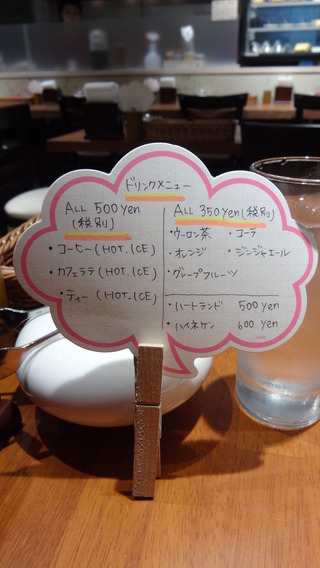 ドリンクメニュー
ALL 500 yen
(税別)
・コーヒー(HOT.ICE)
・カフェラテ(HOT.ICE)
・ティー(HOT.ICE)
ALL 350 yen(税別)
・ウーロン茶 ・コーラ
・オレンジ ・ジンジャエール
・グレープフルーツ
・ハートランド 500 yen
・ハイネケン 600 yen